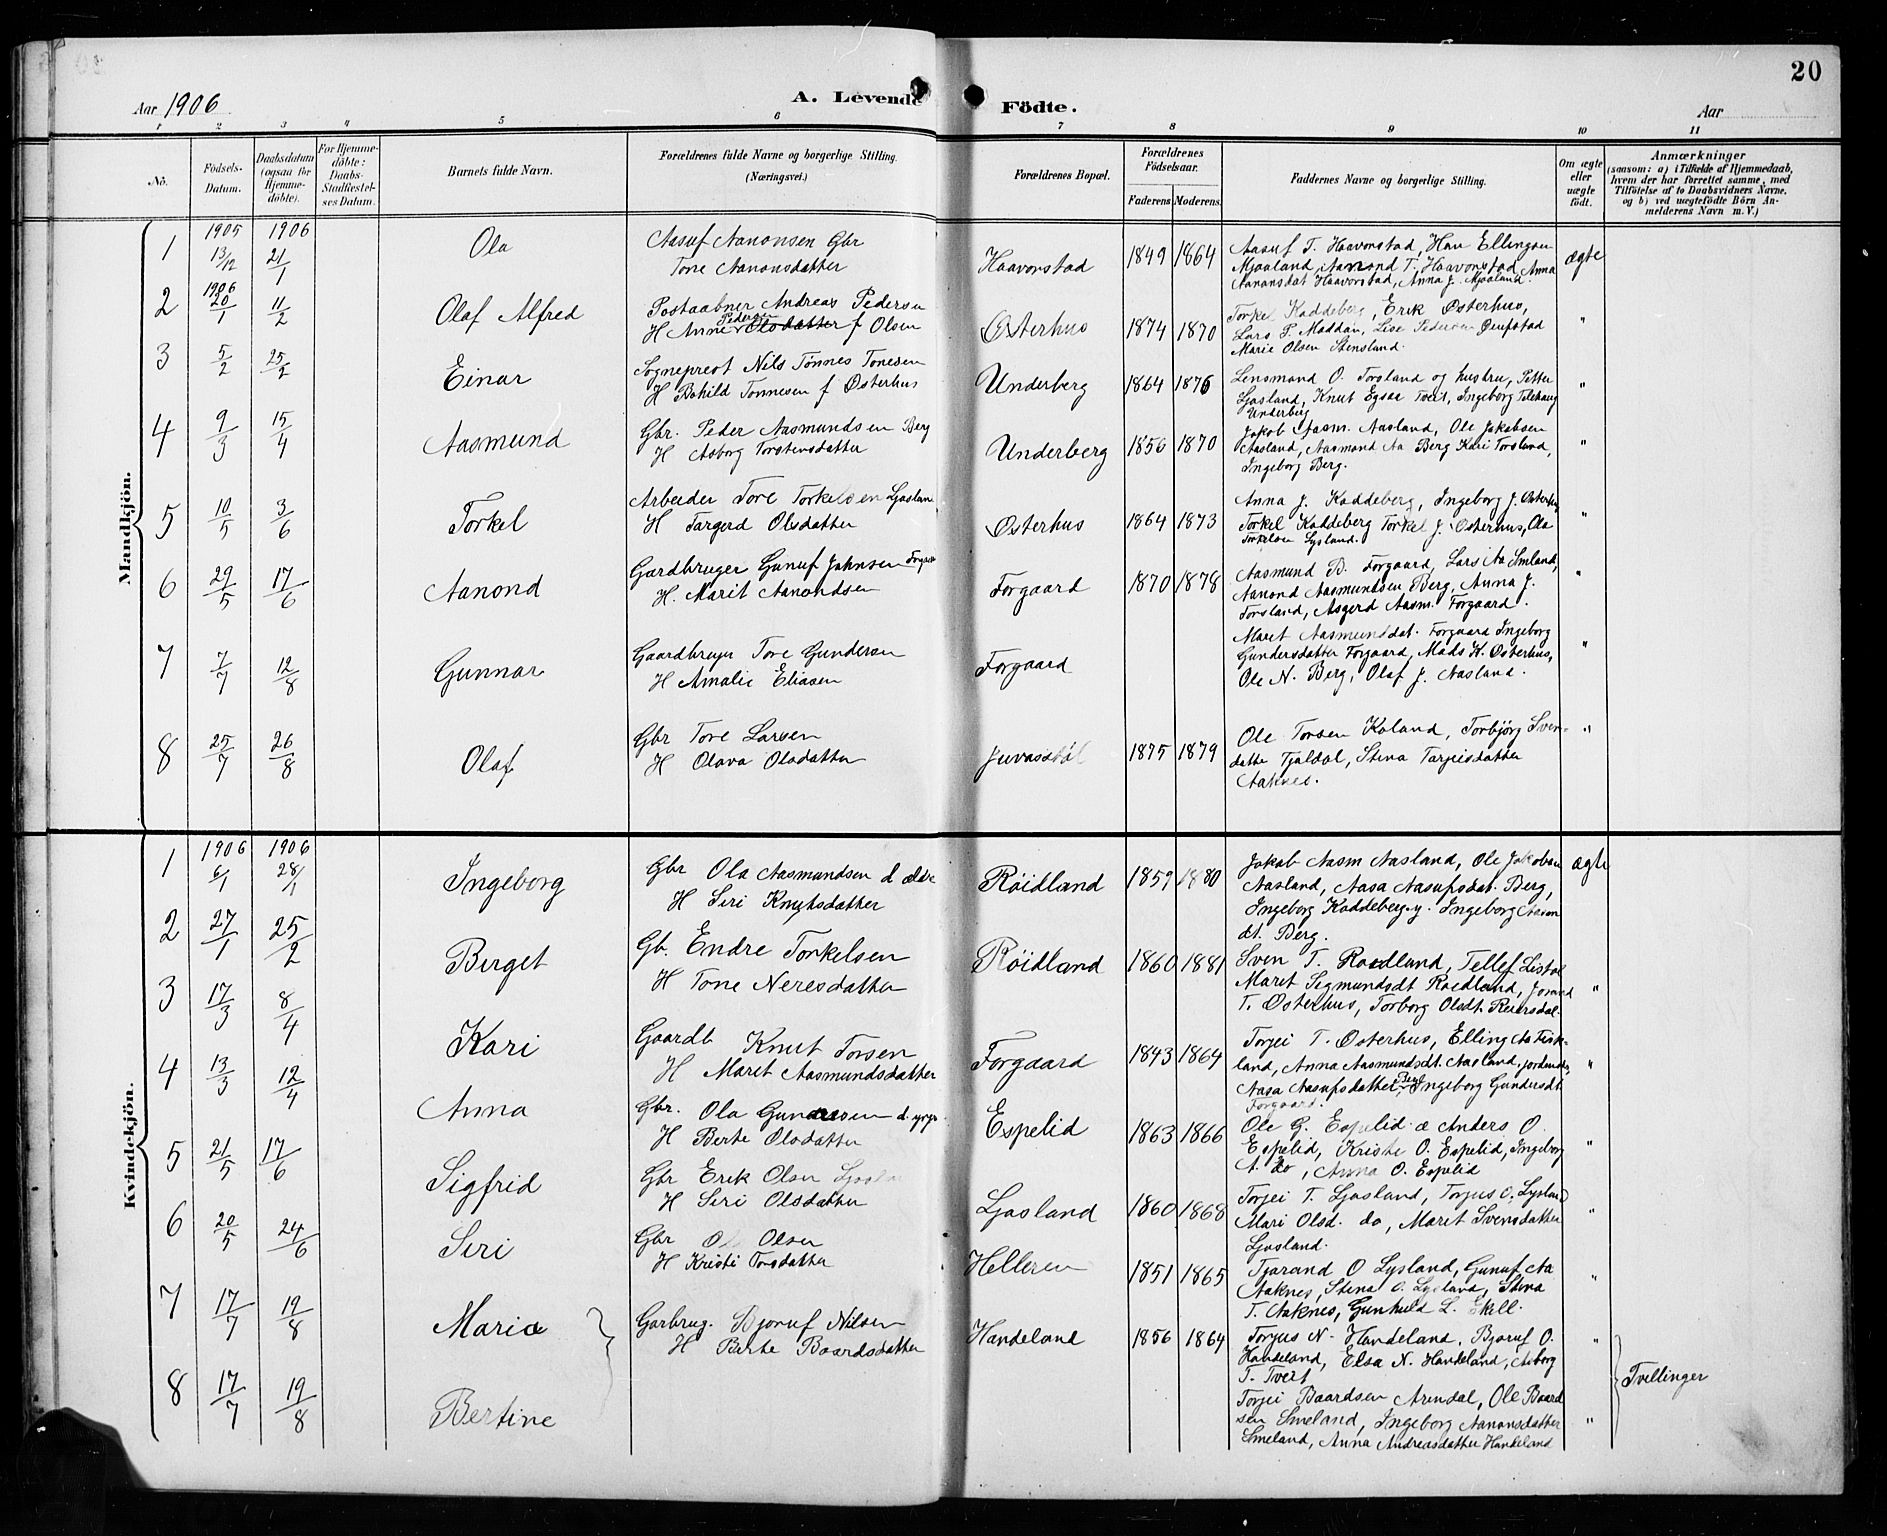 20
Aar 1906
A. Levende Födte.
Aar
1 2 3 4 5 6 7 8 9 10 11
No.
Födsels-Datum.
Daabsdatum (ogsaa for Hjemmedöbte).
For Hjemmedöbte: Daabs-Stadfæstelses Datum.
Barnets fulde Navn.
Forældrenes fulde Navne og borgerlige Stilling.
(Næringsvei.)
Forældrenes Bopæl.
Forældrenes Födselsaar.
Faderens Moderens.
Faddernes Navne og borgerlige Stilling.
Om ægte eller uægte födt.
Anmærkninger
(saasom: a) i Tilfælde af Hjemmedaab,
hvem der har forrettet samme, med
Tilföielse af to Daabsvidners Navne,
og b) ved uægtefödte Börn An-
melderens Navn m. V.)
Mandkjön.
1 1905 13/12 1906 21/1 Ola
Aasuf Aanonsen Gbr
Tone Aanonsdatter
Haavorstad 1849 1864
Aasuf T. Haavorstad, Han Ellingsen
Mjaaland, Aamond T. Haavorstad, Anna
Aanonsdat Haavorstad, Anna J. Mjaaland.
ægte
2 1906 20/1 11/2 Olaf Alfred
Postaabner Andreas Pedersen
H Anne Pedersen Olsdatter f Olsen
Østerhus 1874 1870
Torkel Kaddeberg, Erik Østerhus,
Lars P. Maddan, Lise Pedersen
Marie Olsen Stensland.
"
3 5/2 25/2 Einar
Sogneprest Nils Tønnes Tonesen
H Bohild Tonnesen f Østerhus
Underberg 1864 1876
Lensmand O. Torsland og hustru, Petter
Ljosland, Knut Egsaa Tveit, Ingeborg Telehaug
Underberg
"
4 9/3 15/4 Aasmund
Gbr. Peder Aasmundsen Berg
H Asborg Torstensdatter
Underberg 1856 1870
Jakob Aasm. Aasland, Ole Jakobsen
Aasland, Aasmund Aa Berg Kari Torsland,
Ingeborg Berg.
"
5 10/5 3/6 Torkel
Arbeider Tore Torkelsen Ljoslan
H Targerd Olsdatter
Østerhus 1864 1873
Anna J. Kaddeberg, Ingeborg J. Østerhus
Torkel Kaddeberg Torkel J. Østerhus, Ola
Torkelsen Lysland.
"
6 29/5 17/6 Aanond
Gardbruger Gunuf Johnsen
H. Marit Aanondsen
Forgaard 1870 1878
Aasmund B. Forgaard, Lars Aa Smland,
Aanond Aasmundsen Berg, Anna J.
Torsland, Asgerd Aasm. Forgaard.
"
7 7/7 12/8 Gunnar
Gaardbruger Tore Gundersen
H Amalie Eliasen
Forgaard
Maret Aasmunddat. Forgaard Ingeborg
Gundersdatter Forgaard, Mads K. Østerhus,
Ole N. Berg, Olaf J. Aasland.
"
8 25/7 26/8 Olaf
Gbr Tore Larsen
H Olava Olsdatter
Juvasstøl 1875 1879
Ole Torsen Kaland, Torbjørg Sven-
datte Tjaldal, Stina Tarjeisdatter
Aaknes.
"
Kvindekjön.
1 1906 6/1 1906 28/1 Ingeborg
Gbr Ola Aasmundsen d ældr
H Siri Knutsdatter
Røidland 1859 1880
Jakob Aasm Aasland, Ole Jakobsen
Aasland, Aasa Aasufsdat. Berg,
Ingeborg Kaddeberg y. Ingeborg Aanon
dt. Berg.
ægte
2 27/1 25/2 Berget
Gb. Endre Torkelsen
H Tone Neresdatter
Røidland 1860 1881
Sven T. Roidland, Tellef Listøl
Maret Sigmundsdt Roidland, Jorand
T. Østerhus, Torborg Olsdt Reiersdal.
"
3 17/3 8/4 Kari
Gaardb Knut Torsen
H Maret Aasmundsdatter
Forgaard 1843 1864
Torjei T. Østerhus, Elling Aa Fisk-
land, Anna Aasmundsdt. Aasland,
Aasa Aasufsdatter Berg, Ingeborg Gundersdt
Forgaard.
"
4 13/3 12/4 Anna
Gbr. Ola Gundersen d. yngr.
H Berte Olsdatter
Espelid 1863 1866
Ole G. Espelid æ Anders O.
Espelid, Kriste O. Espelid, Ingeborg
A. do, Anna O. Espelid
"
5 21/5 17/6 Sigfrid
Gbr Erik Olsen
H Siri Olsdatter
Ljosland 1860 1868
Torjei T. Ljosland, Torjus O. Lysland
Mari Olsd. do, Maret Svensdatter
Ljosland.
"
6 20/5 24/6 Siri
Gbr Ole Olsen
H Kristi Torsdatter
Helleren 1851 1865
Tjarand O Lysland, Gunuf Aa
Aaknes, Stina O. Lysland, Stina
T. Aaknes, Gunhild L. Skell.
"
7 17/7 19/8 Maria
Garbrug. Bjoruf Nilsen
H Berte Baardsdatter
Handeland 1856 1864
Torjus N. Handeland. Bjoruf O.
Handeland, Elsa N. Handeland, Asborg
T. Tveit
"
Tvillinger
8 17/7 19/8 Bertine
Torjei Baardsen Arendal, Ole Baard
sen Smeland, Ingeborg Aanonsdatter
Smeland, Anna Andreasdatter Handeland
"